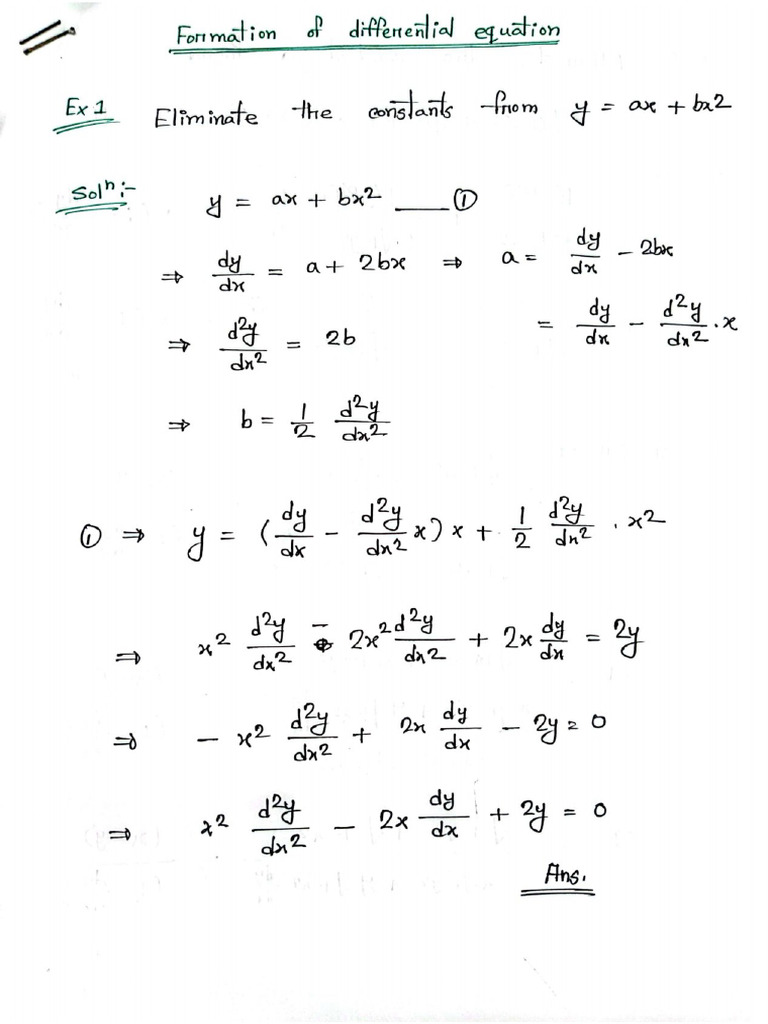 Formation of differential equation
Ex 1 Eliminate the constants from y = ax + bx2
Solⁿ :- y = ax + bx² ___ ①
⇒ dy/dx = a + 2bx ⇒ a = dy/dx - 2bx
⇒ d²y/dx² = 2b = dy/dx - d²y/dx² . x
⇒ b = 1/2 d²y/dx²
① ⇒ y = (dy/dx - d²y/dx² x) x + 1/2 d²y/dx² . x²
⇒ x² d²y/dx² - 2x² d²y/dx² + 2x dy/dx = 2y
⇒ - x² d²y/dx² + 2x dy/dx - 2y = 0
⇒ x² d²y/dx² - 2x dy/dx + 2y = 0
Ans.